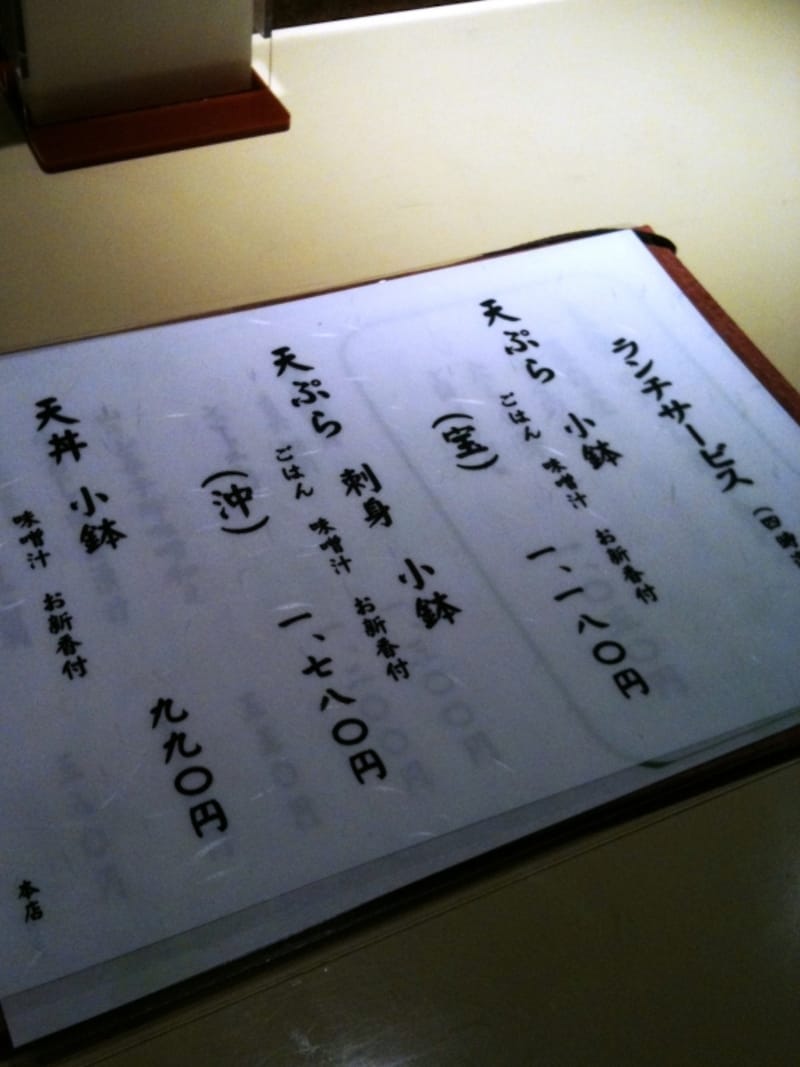 ランチサービス
(四時
天ぷら 小鉢
ごはん 味噌汁 お新香付
(宝)
一、一八〇円
天ぷら 刺身 小鉢
ごはん 味噌汁 お新香付
(沖)
一、七八〇円
天丼 小鉢
味噌汁 お新香付
九九〇円
本店